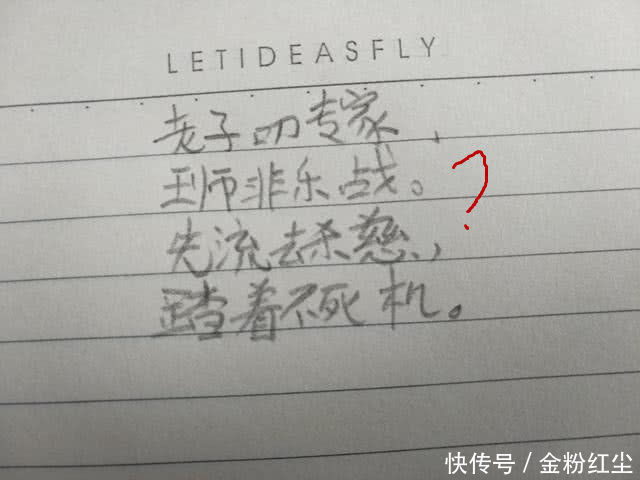 LETIDEASFLY
老子叨专家,
王师非乐战。?
失流去杀慈,
踏着不死机。
快传号/金粉红尘